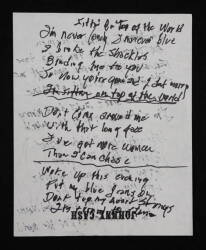 Sittin' On Top of the World
I'm never lonely I never blue
I Broke the Shackles
Binding me to you
So Now you're gone and I don't worry
I'm sittin on top of the world
Don't Come around me
With that long face
I've got more women
Than I can chase
Woke up this evening
Put my blue jeans on
Don't
JOHNNY CASH